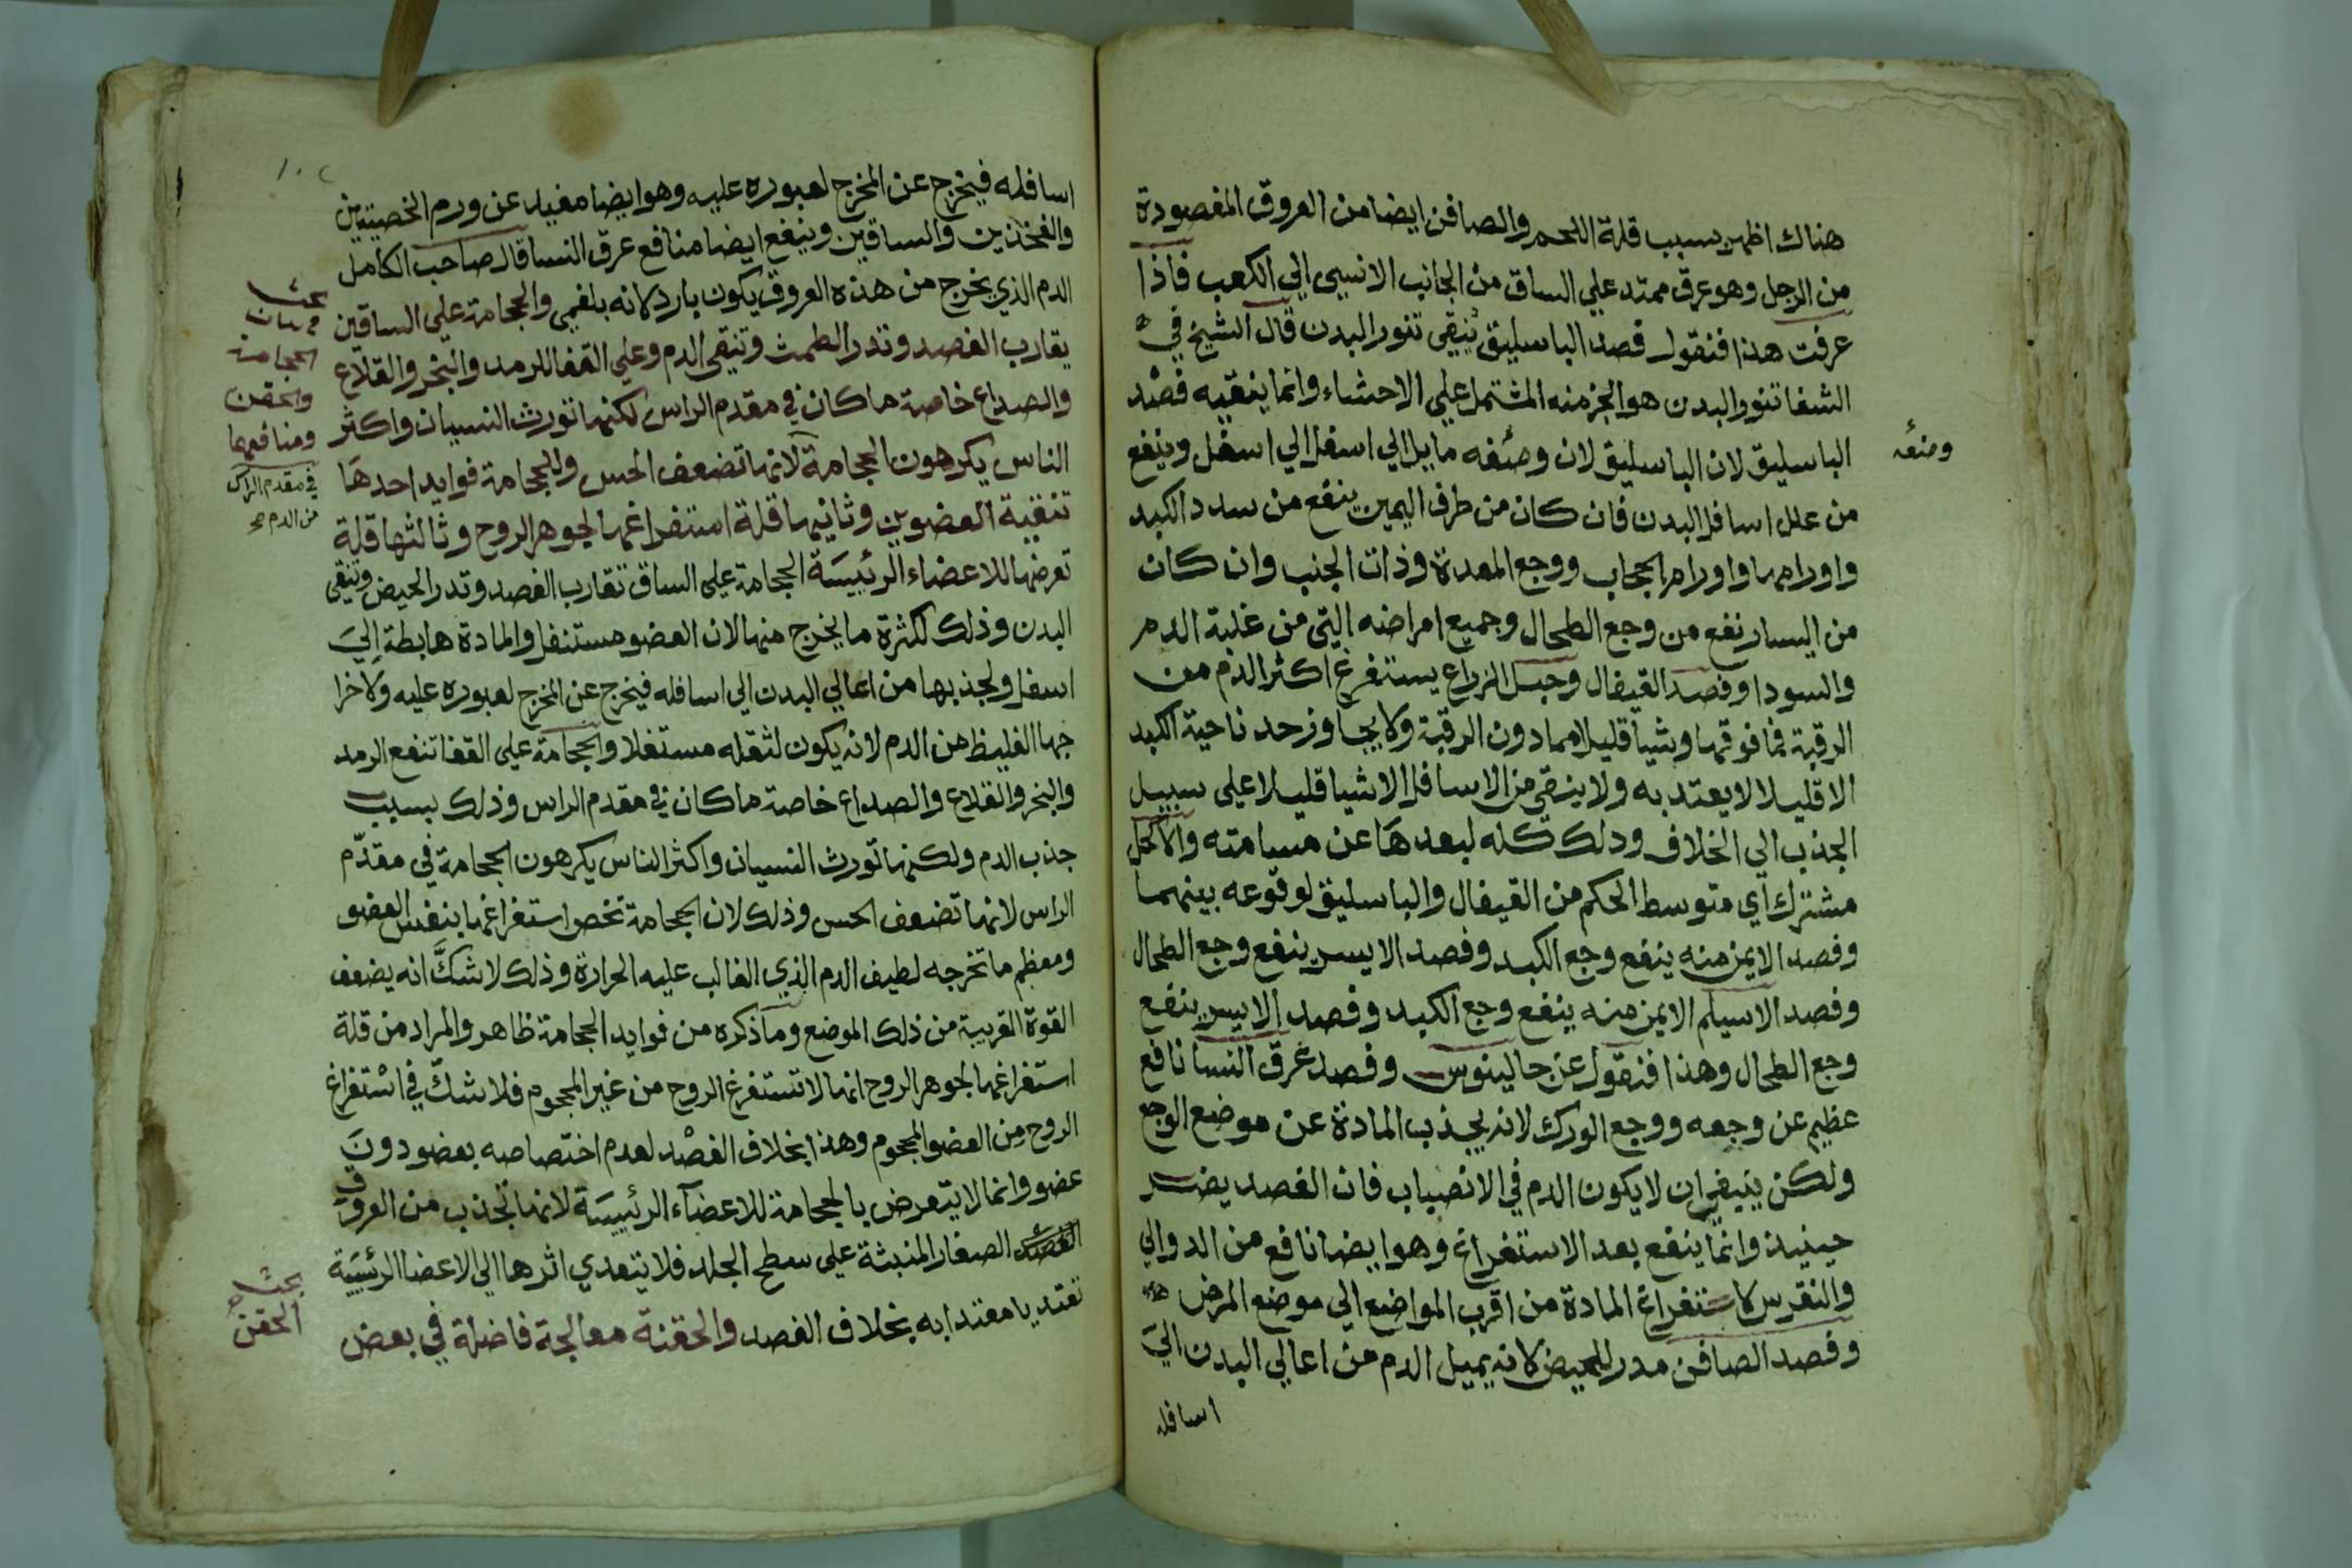 هناك اظهر بسبب قلة اللحم والصافن ايضا من العروق المفصودة
من الرجل وهو عرق ممتد علي الساق من الجانب الانسي الي الكعب فاذا
عرفت هذا فنقول فصد الباسليق ينقي تنور البدن قال الشيخ في
الشفا تنور البدن هو الجزء منه المشتمل علي الاحشاء وانما ينقيه فصد
الباسليق لان الباسليق لان وضعه مايل الي اسفل الي اسفل وينفع
وضعه
من علل اسافل البدن فان كان من طرف اليمين ينفع من سدد الكبد
واورامها واورام الحجاب ووجع المعدة وذات الجنب وان كان
من اليسار نفع من وجع الطحال وجميع امراضه التي من غلبة الدم
والسودا وفصد القيفال وحبل الزراع يستفرغ اكثر الدم من
الرقبة فما فوقها وشيا قليلا مما دون الرقبة ولا يجاوز حد ناحية الكبد
الا قليلا لا يعتد به ولا ينقي من الاسافل الا شيا قليلا علي سبيل
الجذب الي الخلاف وذلك كله لبعدها عن مسامته والاكحل
مشترك اي متوسط الحكم من القيفال والباسليق لوقوعه بينهما
وفصد الايمن منه ينفع وجع الكبد وفصد الايسر ينفع وجع الطحال
وفصد الاسيلم الايمن منه ينفع وجع الكبد وفصد الايسر ينفع
وجع الطحال وهذا فنقول عن جالينوس وفصد عرق النسا نافع
عظيم عن وجعه ووجع الورك لانه يجذب المادة عن موضع الوجع
ولكن ينبغي ان لا يكون الدم في الانصباب فان الفصد يضر
حينيذ وانما ينفع بعد الاستفراغ وهو ايضا نافع من الدوالي
والنقرس لاستفراغ المادة من اقرب المواضع الي موضع المرض
وفصد الصافن مدر للحيض لانه يميل الدم من اعالي البدن الي
اسافله
اسافله فيخرج عن المخرج لعبوره عليه وهو ايضا مفيد عن ورم الخصيتين
والفخذين والساقين وينفع ايضا منافع عرق النسا قال صاحب الكامل
الدم الذي يخرج من هذه العروق يكون بارد لانه بلغمي والحجامة علي الساقين
يقارب الفصد وتدر الطمث وتنقي الدم وعلي القفا للرمد والبخر والقلاع
والصداع خاصة ما كان في مقدم الراس لكنها تورث النسيان واكثر
الناس يكرهون الحجامة لانها تضعف الحس وللحجامة فوايد احدها
تنقية العضوين وثانيها قلة استفراغها لجوهر الروح وثالثها قلة
تعرضها للاعضاء الرئيسة الحجامة علي الساق تقارب الفصد وتدر الحيض وتنقي
البدن وذلك لكثرة ما يخرج منها لان العضو مستنفل والمادة هابطة الي
اسفل ولجذبها من اعالي البدن الي اسافله فيخرج عن المخرج لعبوره عليه ولاخرا
جها الغليظ من الدم لانه يكون لثقله مستفلا والحجامة علي القفا تنفع الرمد
والبخر والقلاع والصداع خاصة ما كان في مقدم الراس وذلك بسبب
جذب الدم ولكنها تورث النسيان واكثر الناس يكرهون الحجامة في مقدم
الراس لانها تضعف الحس وذلك لان الحجامة تخص استفراغها بنفس العضو
ومعظم ما تخرجه لطيف الدم الذي الغالب عليه الحرارة وذلك لا شك انه يضعف
القوة القريبة من ذلك الموضع وما ذكره من فوايد الحجامة ظاهر والمراد من قلة
استفراغها لجوهر الروح انها لا تستفرغ الروح من غير المحجوم فلا شك في استفراغ
الروح من العضو المحجوم وهذا بخلاف الفصد لعدم اختصاصه بعضو دون
عضو وانما لا يتعرض بالحجامة للاعضاء الرئيسة لانها تجذب من العروق
الصغار المنبثة علي سطح الجلد فلا يتعدي اثرها الي الاعضا الرئيسية
تعتديا معتدا به بخلاف الفصد والحقنة معالجة فاضلة في بعض
بحث
الحجامة
والحقن
ومنافعهما
في مقدم الراس
من الدم صح
بحث
الحقن